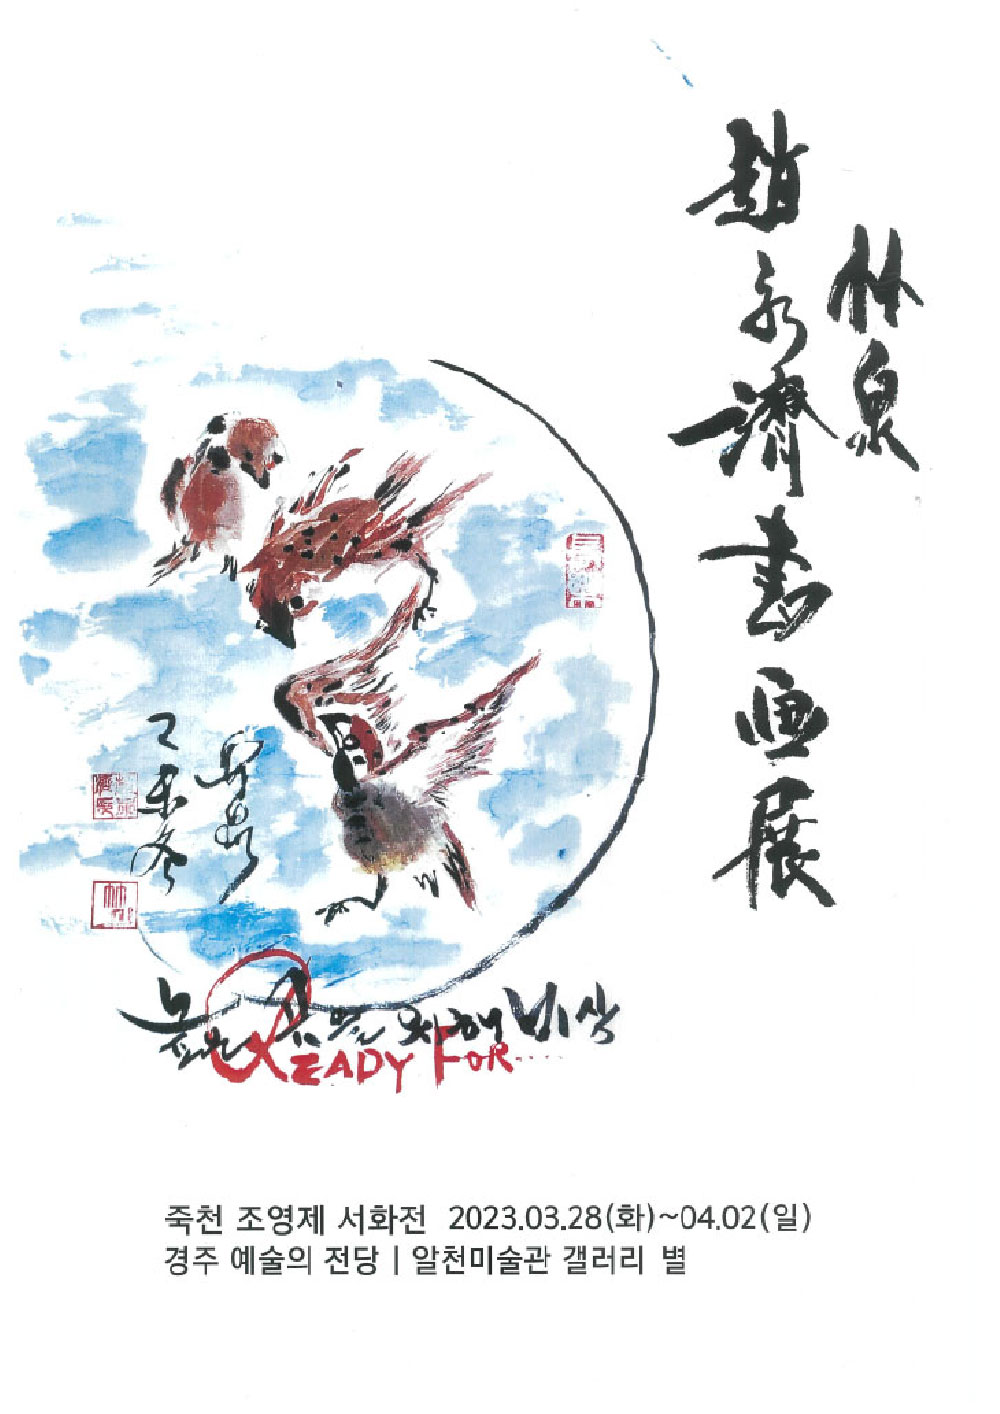 竹泉
趙永濟書画展
높은 꿈을 위해 비상
READY FOR....
죽천 조영제 서화전 2023.03.28(화)~04.02(일)
경주 예술의 전당 | 알천미술관 갤러리 별